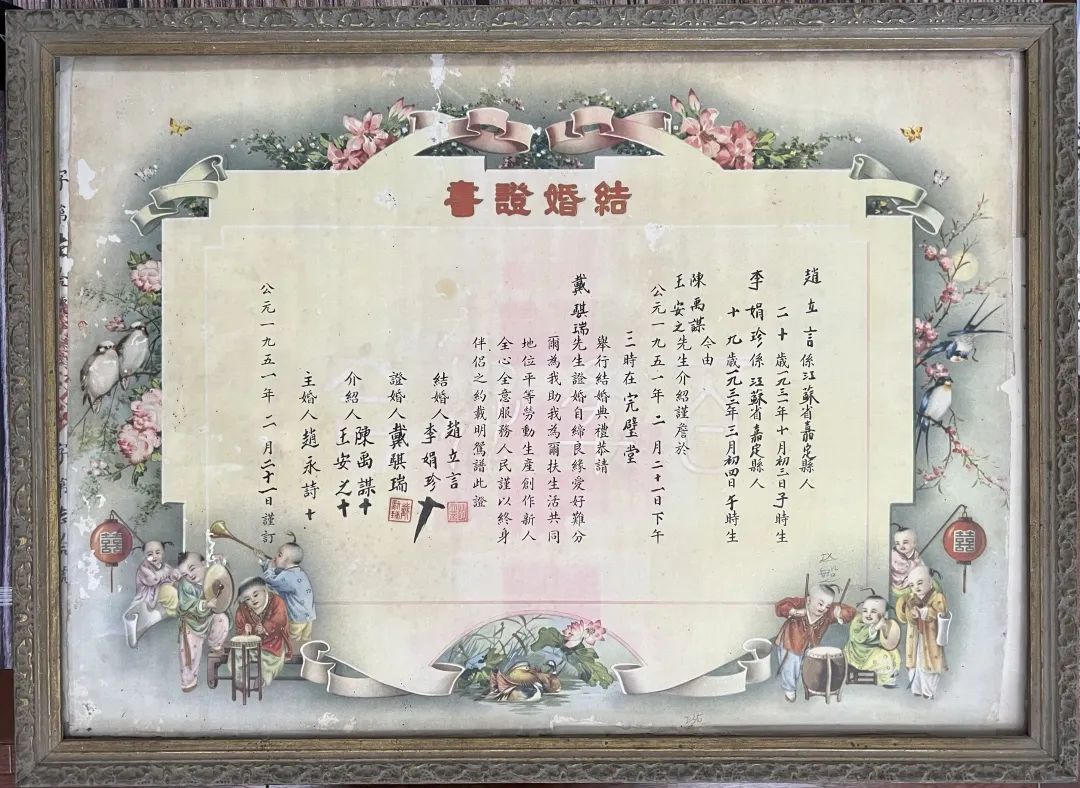 結婚證書
趙立言係江蘇省嘉定縣人
二十歲一九三一年十月初三日子時生
李娟珍係江蘇省嘉定縣人
十九歲一九三三年三月初四日午時生
今由
陳禹謀
王安之先生介紹謹詹於
公元一九五一年二月二十一日下午
三時在完璧堂
舉行結婚典禮恭請
戴騏瑞先生證婚自締良緣愛好難分
爾為我助我為爾扶生活共同
地位平等勞動生產創作新人
全心全意服務人民謹以終身
伴侶之約載明鴛譜此證
結婚人趙立言
李娟珍十
證婚人戴騏瑞
介紹人陳禹謀十
王安之十
主婚人趙永詩十
公元一九五一年二月二十一日謹訂
字第
囍
囍